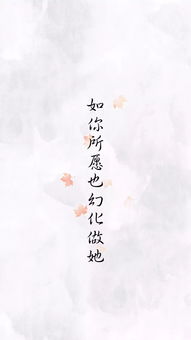 如你所愿也幻化做她